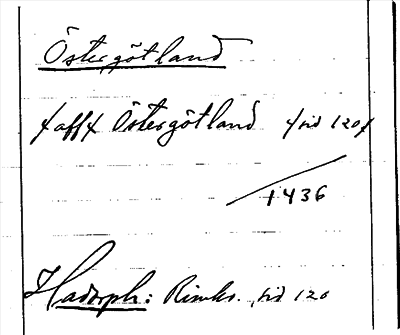 Östergötland
/aff/ Östergötland /sid 120/
1436
Hadorph: Rimkr. sid 120